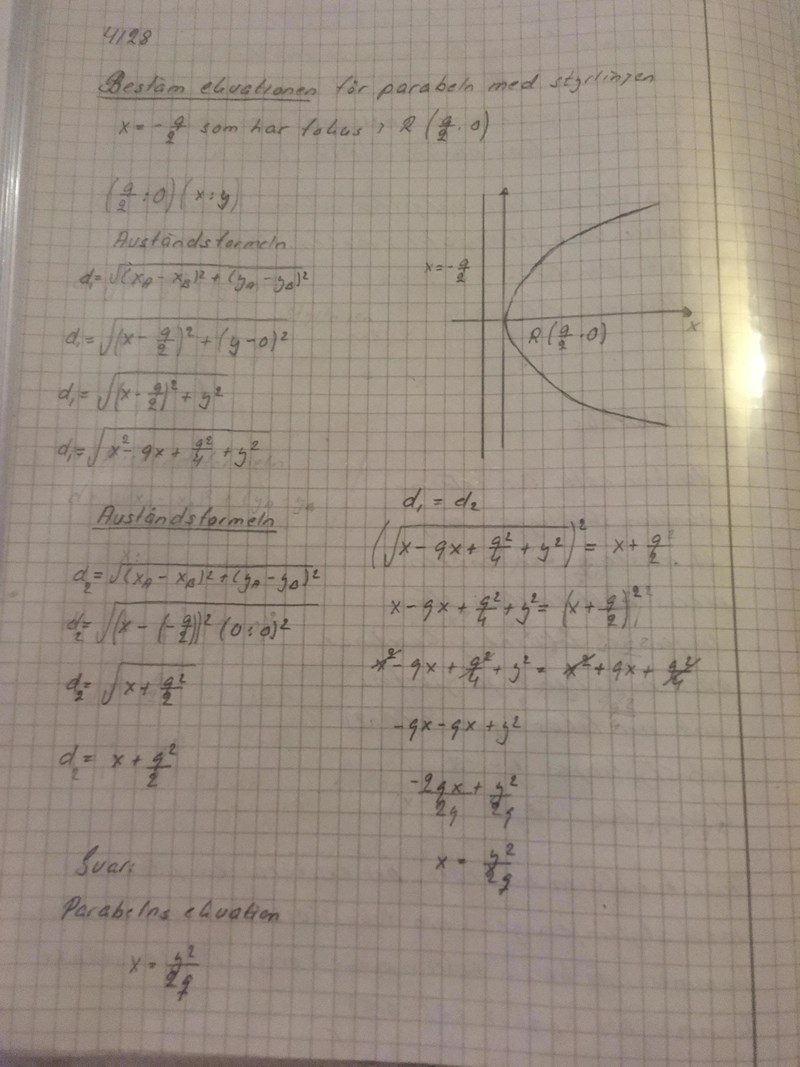 4128
Bestäm ekvationen för parabeln med styrlinjen
x = -q/2 som har fokus i R (q/2 . 0)
(q/2 : 0) (x : y)
Avståndsformeln
d₁ = √(x_A - x_B)² + (y_A - y_B)²
d₁ = √(x - q/2)² + (y - 0)²
d₁ = √(x - q/2)² + y²
d₁ = √x² - qx + q²/4 + y²
x = -q/2
R (q/2 . 0)
x
Avståndsformeln
d₂ = √(x_A - x_B)² + (y_A - y_B)²
d₂ = √(x - (-q/2))² (0 : 0)²
d₂ = √x + q²/2
d₂ = x + q²/2
d₁ = d₂
(√x - qx + q²/4 + y²)² = x + q/2
x - qx + q²/4 + y² = (x + q/2)²
x² - qx + q²/4 + y² = x² + qx + q²/4
-qx - qx + y²
-2qx/2q + y²/2q
x = y²/2q
Svar:
Parabelns ekvation
x = y²/2q